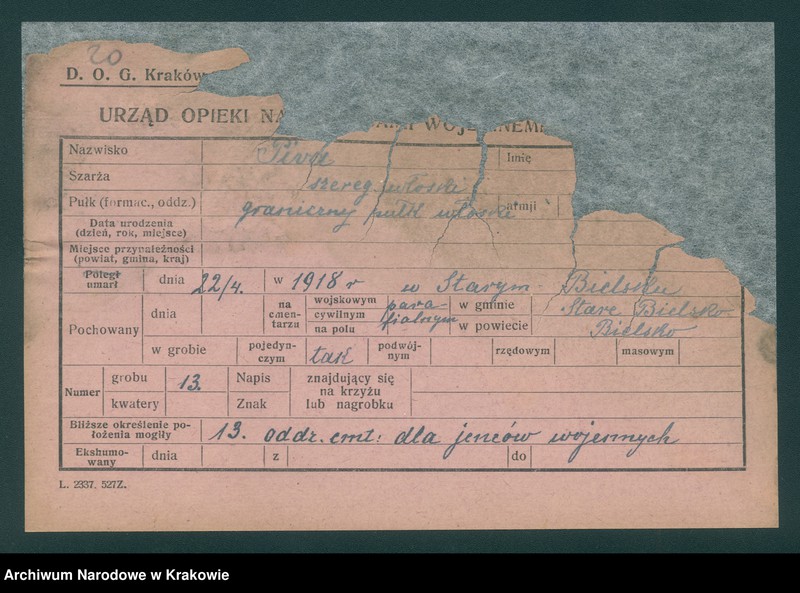 20
D. O. G. Kraków
URZĄD OPIEKI NA AMI WOJENNEMI
Nazwisko Imię
Szarża szereg. włoski
Pułk (formac., oddz.) graniczny pułk włoski armji
Data urodzenia
(dzień, rok, miejsce)
Miejsce przynależności
(powiat, gmina, kraj)
Poległ
umarł dnia 22/4. w 1918 r w Starym Bielsku
Pochowany dnia na cmen-tarzu wojskowym cywilnym na polu para-fialnym w gminie Stare Bielsko
w powiecie Bielsko
w grobie pojedyn-czym tak podwój-nym rzędowym masowym
Numer grobu 13. Napis znajdujący się
kwatery Znak na krzyżu
lub nagrobku
Bliższe określenie po-
łożenia mogiły 13. oddz. cmt: dla jeńców wojennych
Ekshumo-
wany dnia z do
L. 2337. 527Z.
Archiwum Narodowe w Krakowie